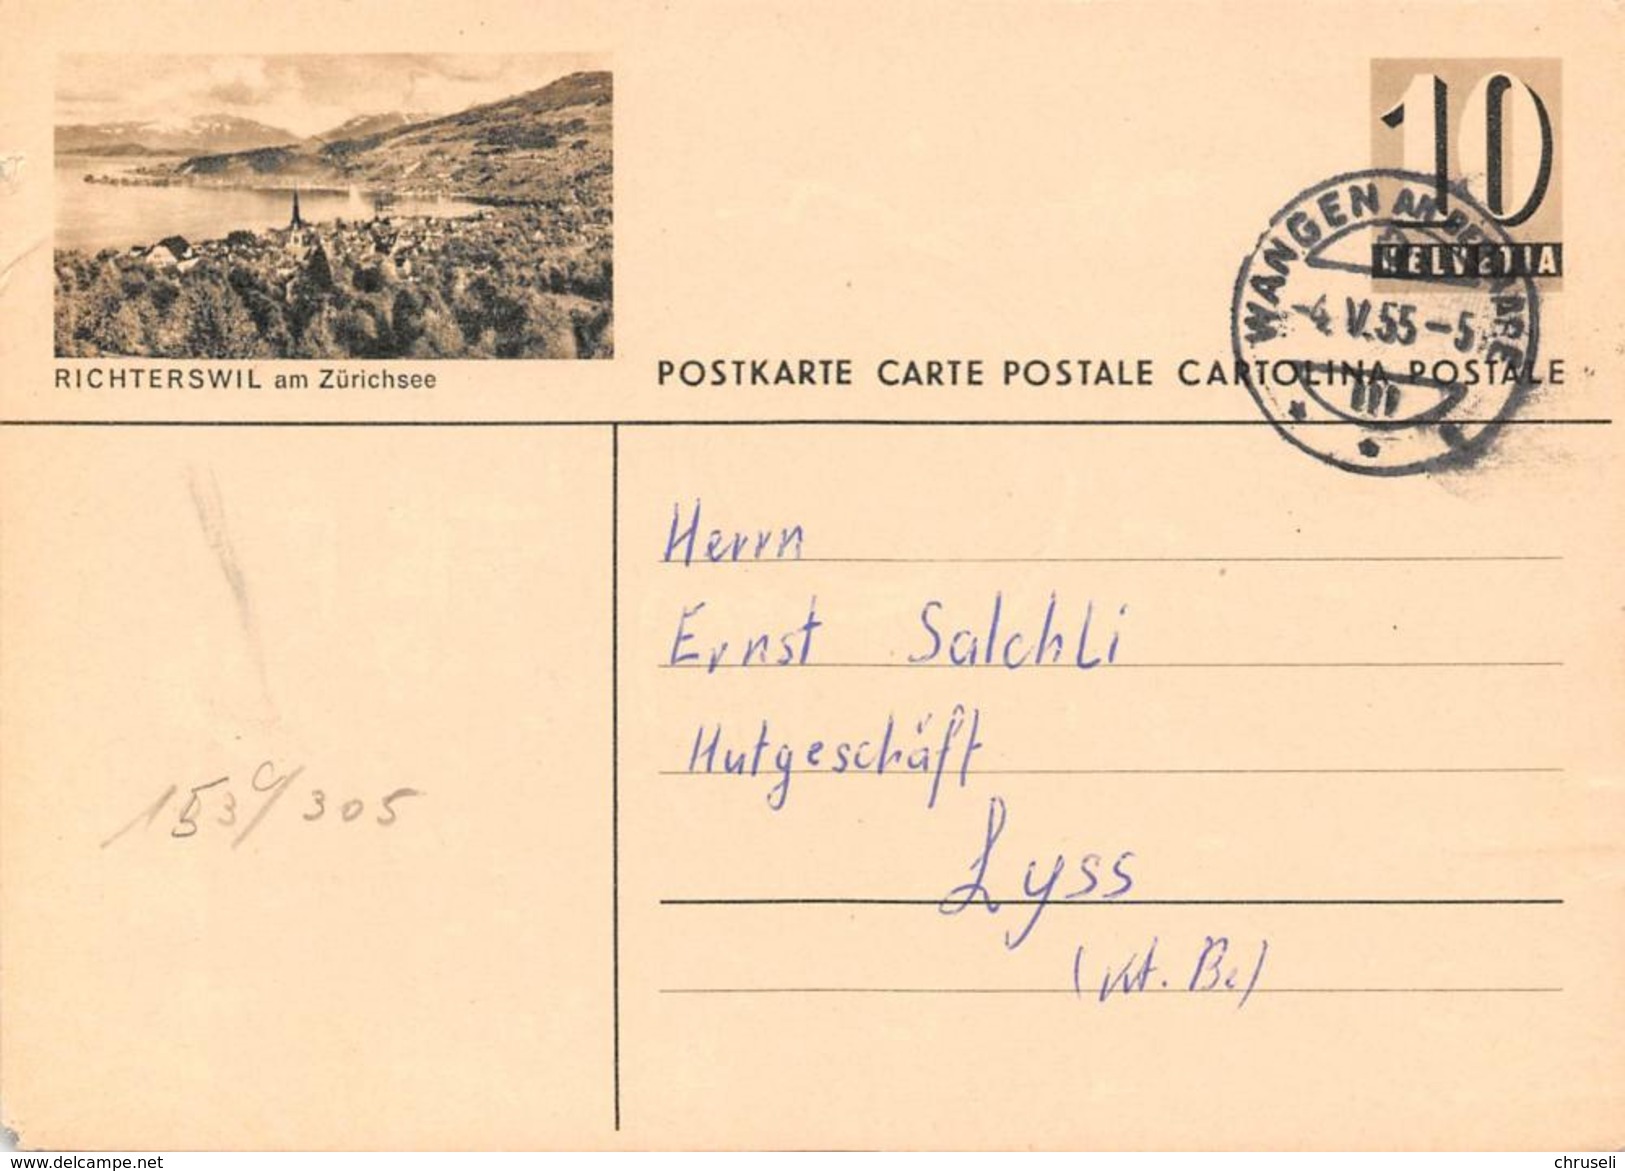 10
HELVETIA
WANGEN AN DER AARE
-4. V. 55 - 5
RICHTERSWIL am Zürichsee
POSTKARTE CARTE POSTALE CARTOLINA POSTALE
Herrn
Ernst Salchli
Hutgeschäft
Lyss
(Kt. Be)
153c/305
www.delcampe.net
chruseli